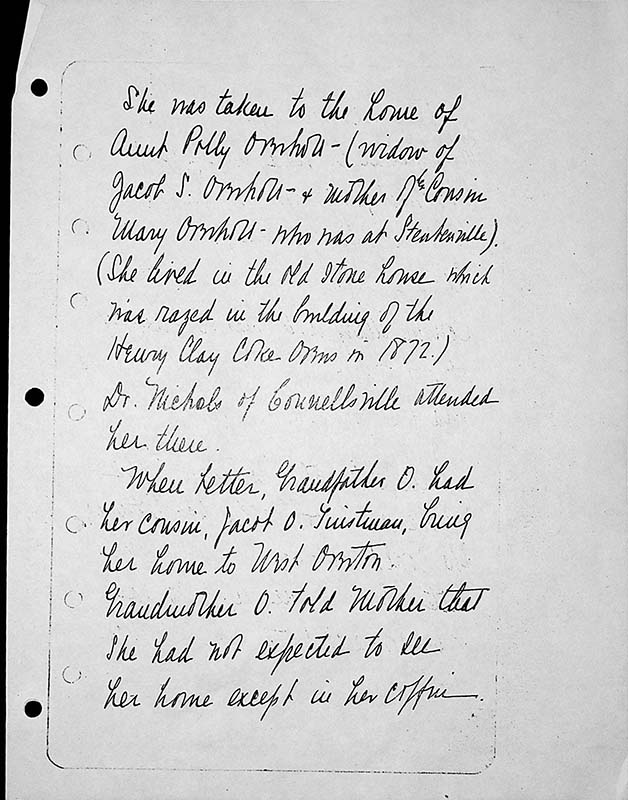 She was taken to the home of
Aunt Polly Overholt - (widow of
Jacob S. Overholt - & mother of Cousin
Mary Overholt - who was at Steubenville).
(She lived in the old stone house which
was razed in the building of the
Henry Clay Coke Ovens in 1872.)
Dr. Nichols of Connellsville attended
her there.
When better, Grandfather O. had
her cousin, Jacob O. Tinstman, bring
her home to West Overton.
Grandmother O. told Mother that
she had not expected to see
her home except in her coffin.